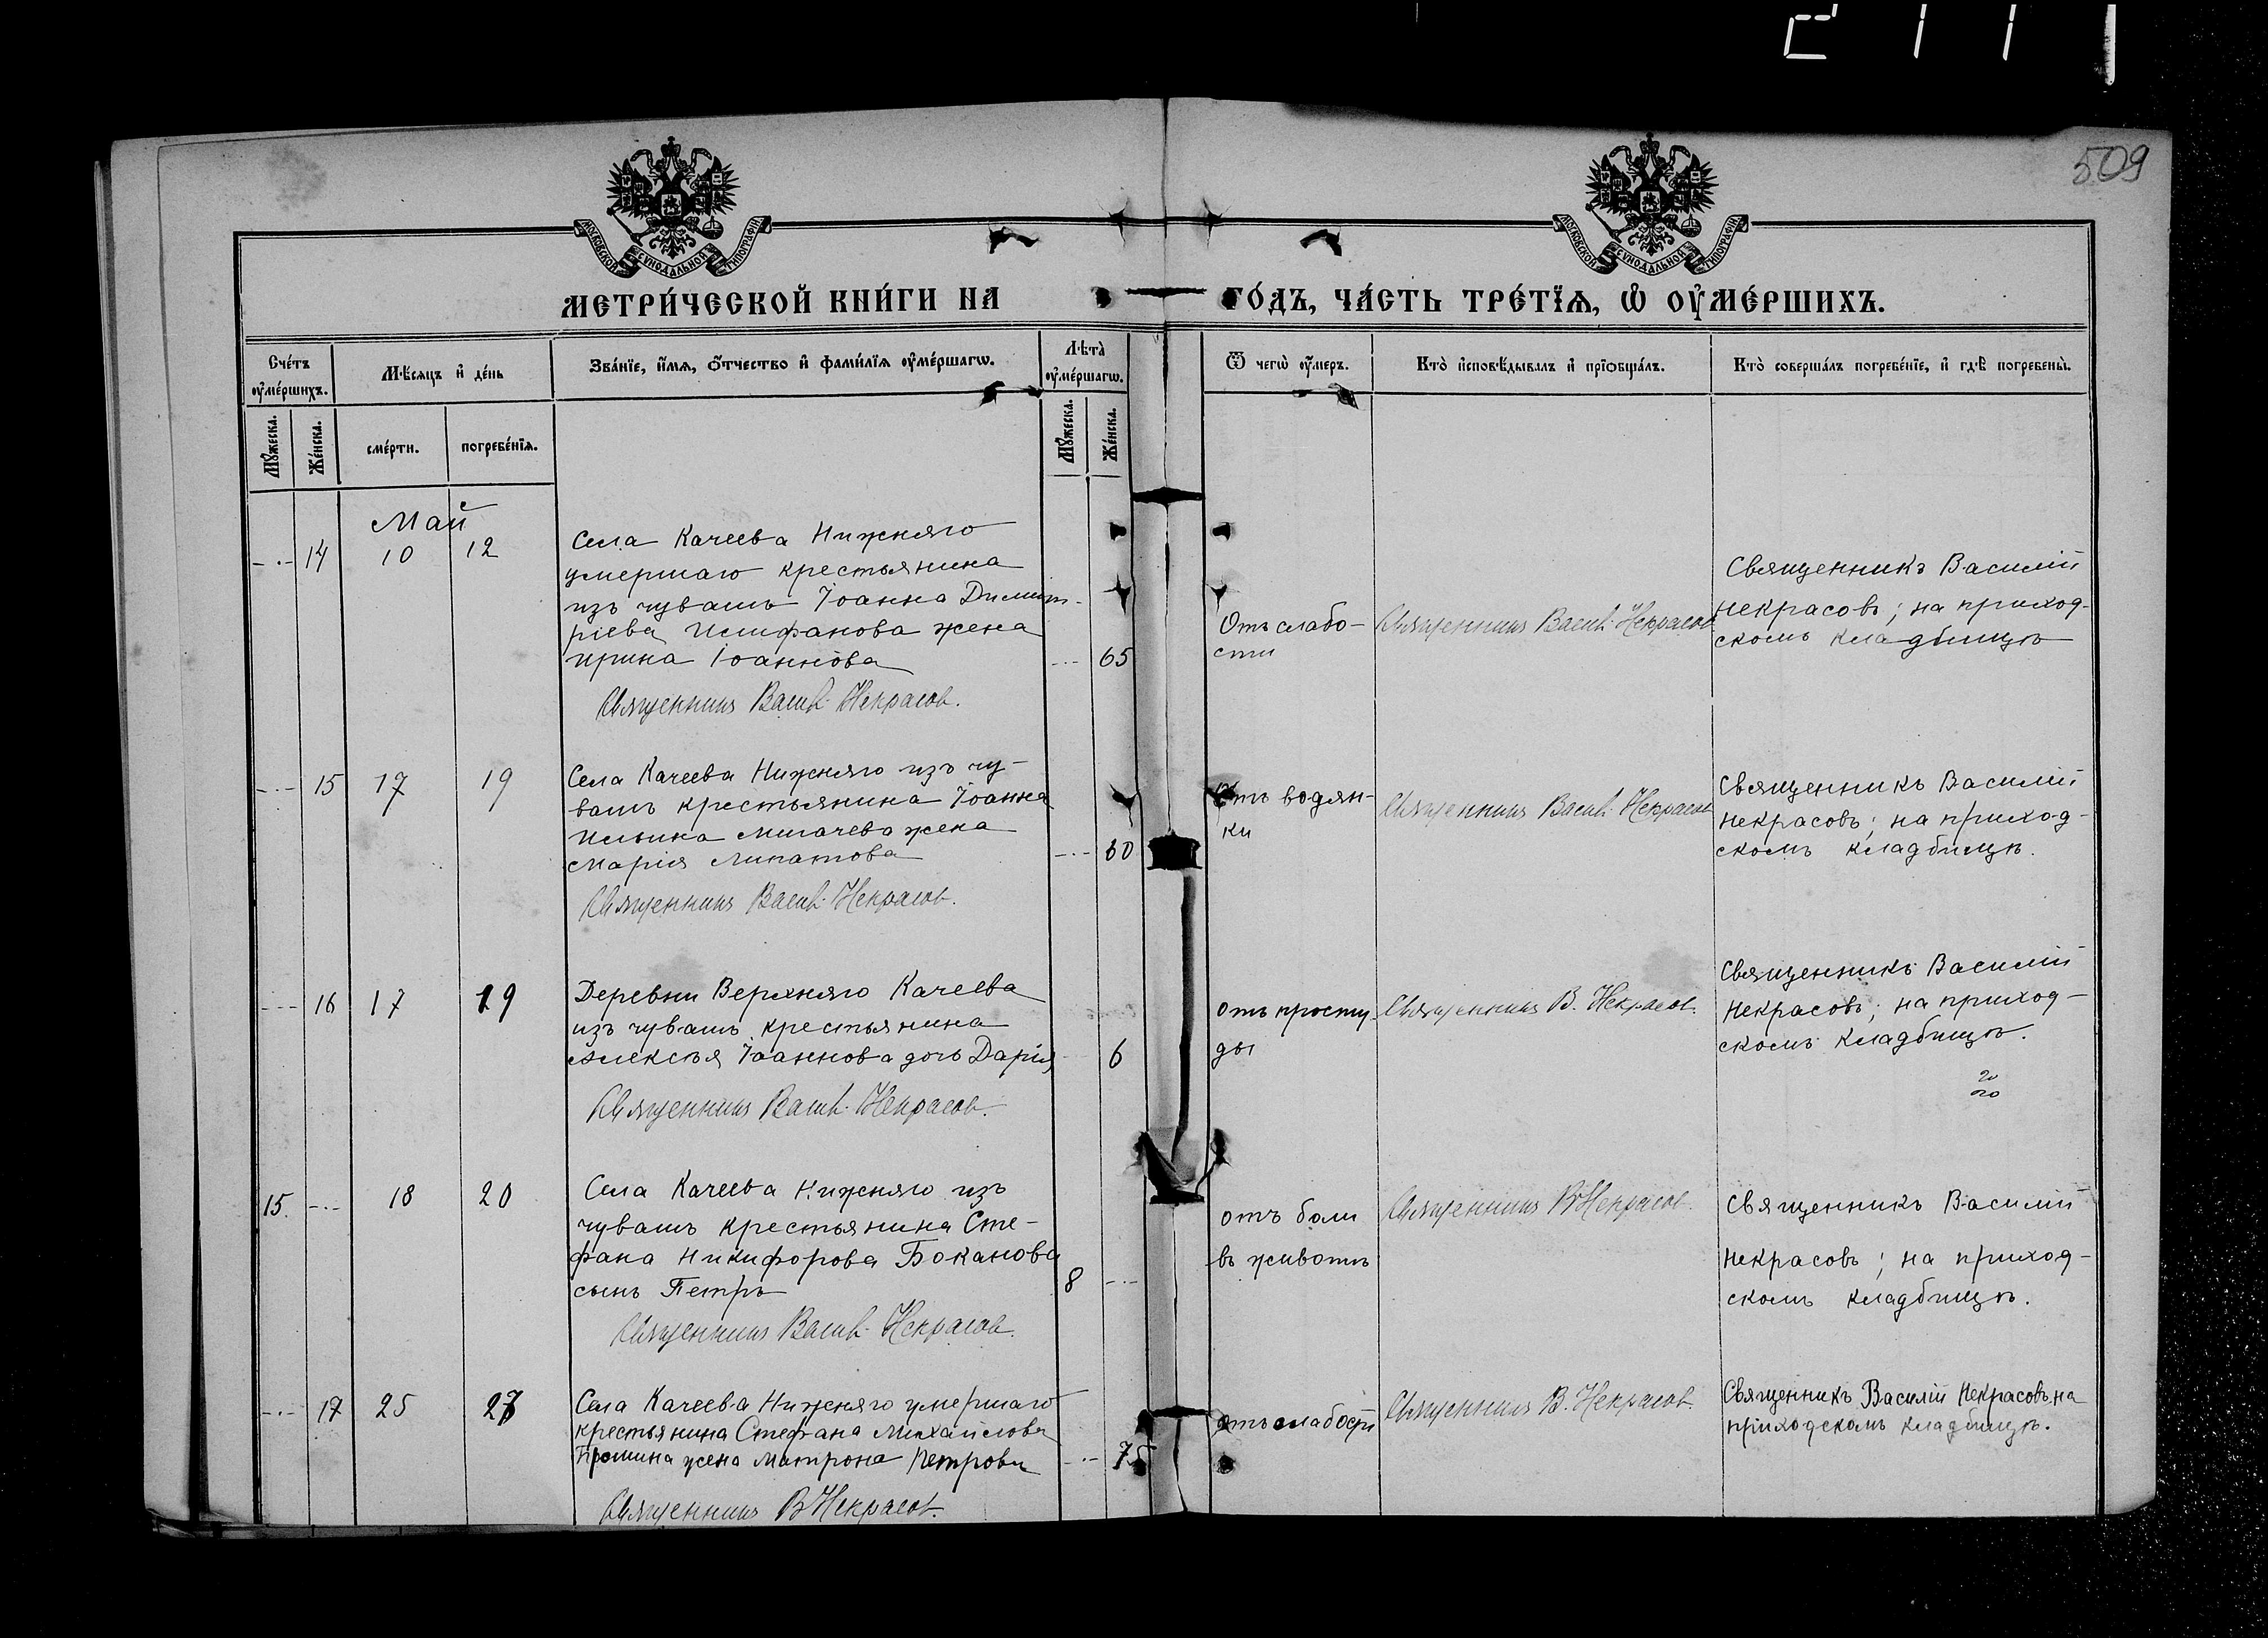 2111
509
МОСКОВСКОЙ СУНОДАЛЬНОЙ ТИПОГРАФІИ
МОСКОВСКОЙ СУНОДАЛЬНОЙ ТИПОГРАФІИ
МЕТРИ́ЧЕСКОЙ КНИ́ГИ НА ГО́ДЪ, ЧА́СТЬ ТРЕ́ТЇѦ, Ѡ҆ ОУ҆МЕ́РШИХЪ.
Сче́тъ оу҆ме́ршихъ.
Мѣ́сяцъ и҆ де́нь
Зва́нїе, и҆́мѧ, ѻ҆́тчество и҆ фами́лїѧ оу҆ме́ршагѡ.
Лѣ́та оу҆ме́ршагѡ.
Ѿ чегѡ̀ оу҆́меръ.
Кто̀ и҆сповѣ́дывалъ и҆ прїѡбща́лъ.
Кто̀ соверша́лъ погребе́нїе, и҆ гдѣ̀ погребены̀.
Мꙋ́жеска.
Же́нска.
сме́рти.
погребе́нїѧ.
Мꙋ́жеска.
Же́нска.
Май
14 10 12
Села Качеева Нижняго
умершаго крестьянина
изъ чувашъ Іоанна Димит-
ріева жена
Ирина Іоаннова
65
Священникъ Васил. Некрасов.
Отъ слабо-
сти
Священникъ Васил. Некрасов
Священникъ Василій
Некрасовъ; на приход-
скомъ кладбищѣ
15 17 19
Села Качеева Нижняго изъ чу-
вашъ крестьянина Іоанна
Ильина жена
Марія Липатова
60
Священникъ Васил. Некрасов.
Отъ водян-
ки
Священникъ Васил. Некрасов
Священникъ Василій
Некрасовъ; на приход-
скомъ кладбищѣ.
16 17 19
Деревни Верхняго Качеева
изъ чувашъ крестьянина
Алексѣя Іоаннова дочь Дарія
6
Священникъ Васил. Некрасов.
отъ просту-
ды
Священникъ В. Некрасов.
Священникъ Василій
Некрасовъ; на приход-
скомъ кладбищѣ.
15. 18 20
Села Качеева Нижняго изъ
чувашъ крестьянина Сте-
фана Никифорова Боканова
сынъ Петръ
8
Священникъ Васил. Некрасов.
отъ боли
въ животѣ
Священникъ В Некрасов.
Священникъ Василій
Некрасовъ; на приход-
скомъ кладбищѣ.
17 25 27
Села Качеева Нижняго умершаго
крестьянина Стефана Михайлова
жена Матрона Петрова
75
Священникъ В Некрасов.
отъ слабости
Священникъ В. Некрасов.
Священникъ Василій Некрасовъ, на
приходскомъ кладбищѣ.